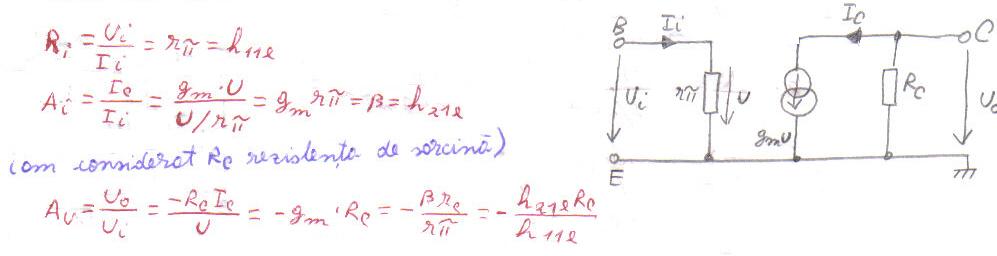 Ri = Ui/Ii = rπ = h11e
Ai = Ic/Ii = gm·U/U/rπ = gm rπ = β = h21e
(am considerat Rc rezistența de sarcină)
Au = Uo/Ui = -Rc Ic/U = -gm·Rc = -βrc/rπ = -h21e Rc/h11e
B Ii Ic C
Ui rπ U gmU Rc Uo
E